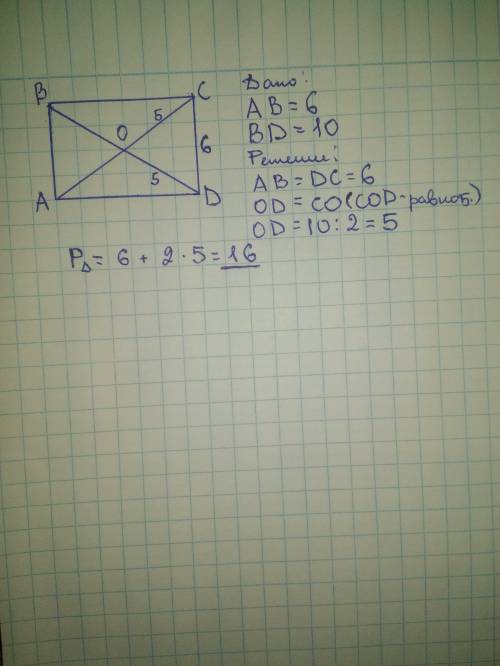 B
C
5
O
6
5
A
D
Дано:
AB = 6
BD = 10
Решение:
AB = DC = 6
OD = CO (COD - равноб.)
OD = 10 : 2 = 5
P△ = 6 + 2 · 5 = 16